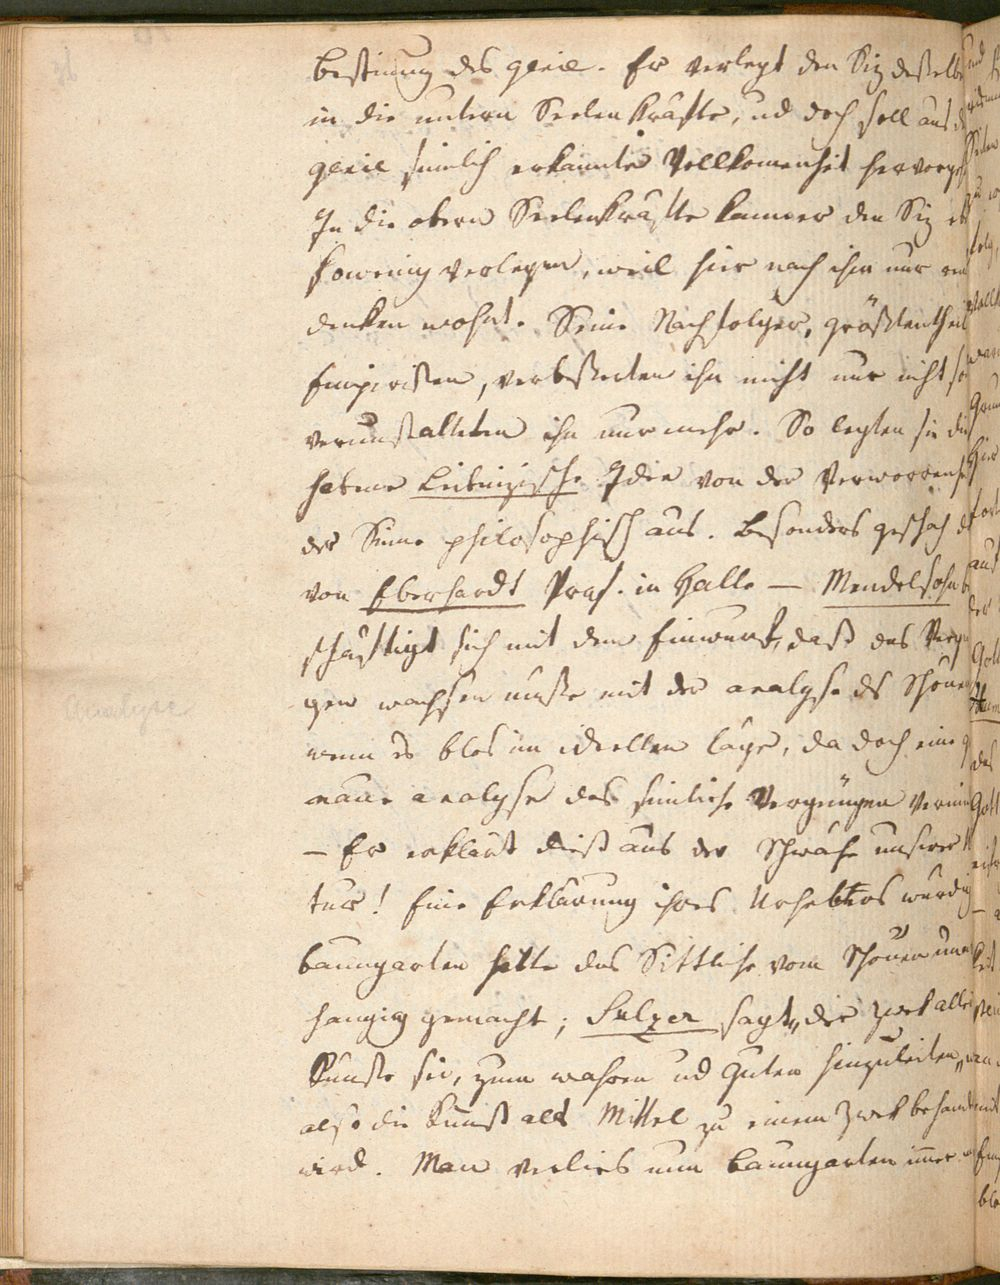 bestim̄ung des genie. Er verlegt den Siz deßelbe
in die untern Seelenkräfte, ud doch soll aus d
genie sinnlich erkannte Vollkom̄enheit hervorge
In die obern Seelenkräfte kann er den Siz eb
sowenig verlegen, weil hier nach ihm nur
denken wohnt. Seine Nachfolger, größtentheil
Empiristen, verbeßerten ihn nicht nur nicht so
verunstalteten ihn nur mehr. So legten sie die
habene Leibnizische Idee von der Verworrenh
der Sinne philosophisch aus. Besonders geschah d
von Eberhardt Prof. in Halle — Mendelsohn b
schäftigt sich mit dem Einwurf, daß das Verg
gen wachsen müße mit der analyse ds Schönen
wenn es blos im ideellen läge, da doch eine g
naue analyse das sinliche Vergnügen vernim
— Er erklärt dieß aus der Schwäche unserer
tur! Eine Erklärung ihres Urhebers würdig
Baumgarten hatte das Sittliche vom Schönen una
hängig gemacht; Sulzer sagt „der Zwek aller
Künste sei, zum wahren ud Guten hinzuleiten„
also die Kunst als Mittel zu einem Zwek behand
wird. Man verlies nun Baumgarten im̄er
Analyse